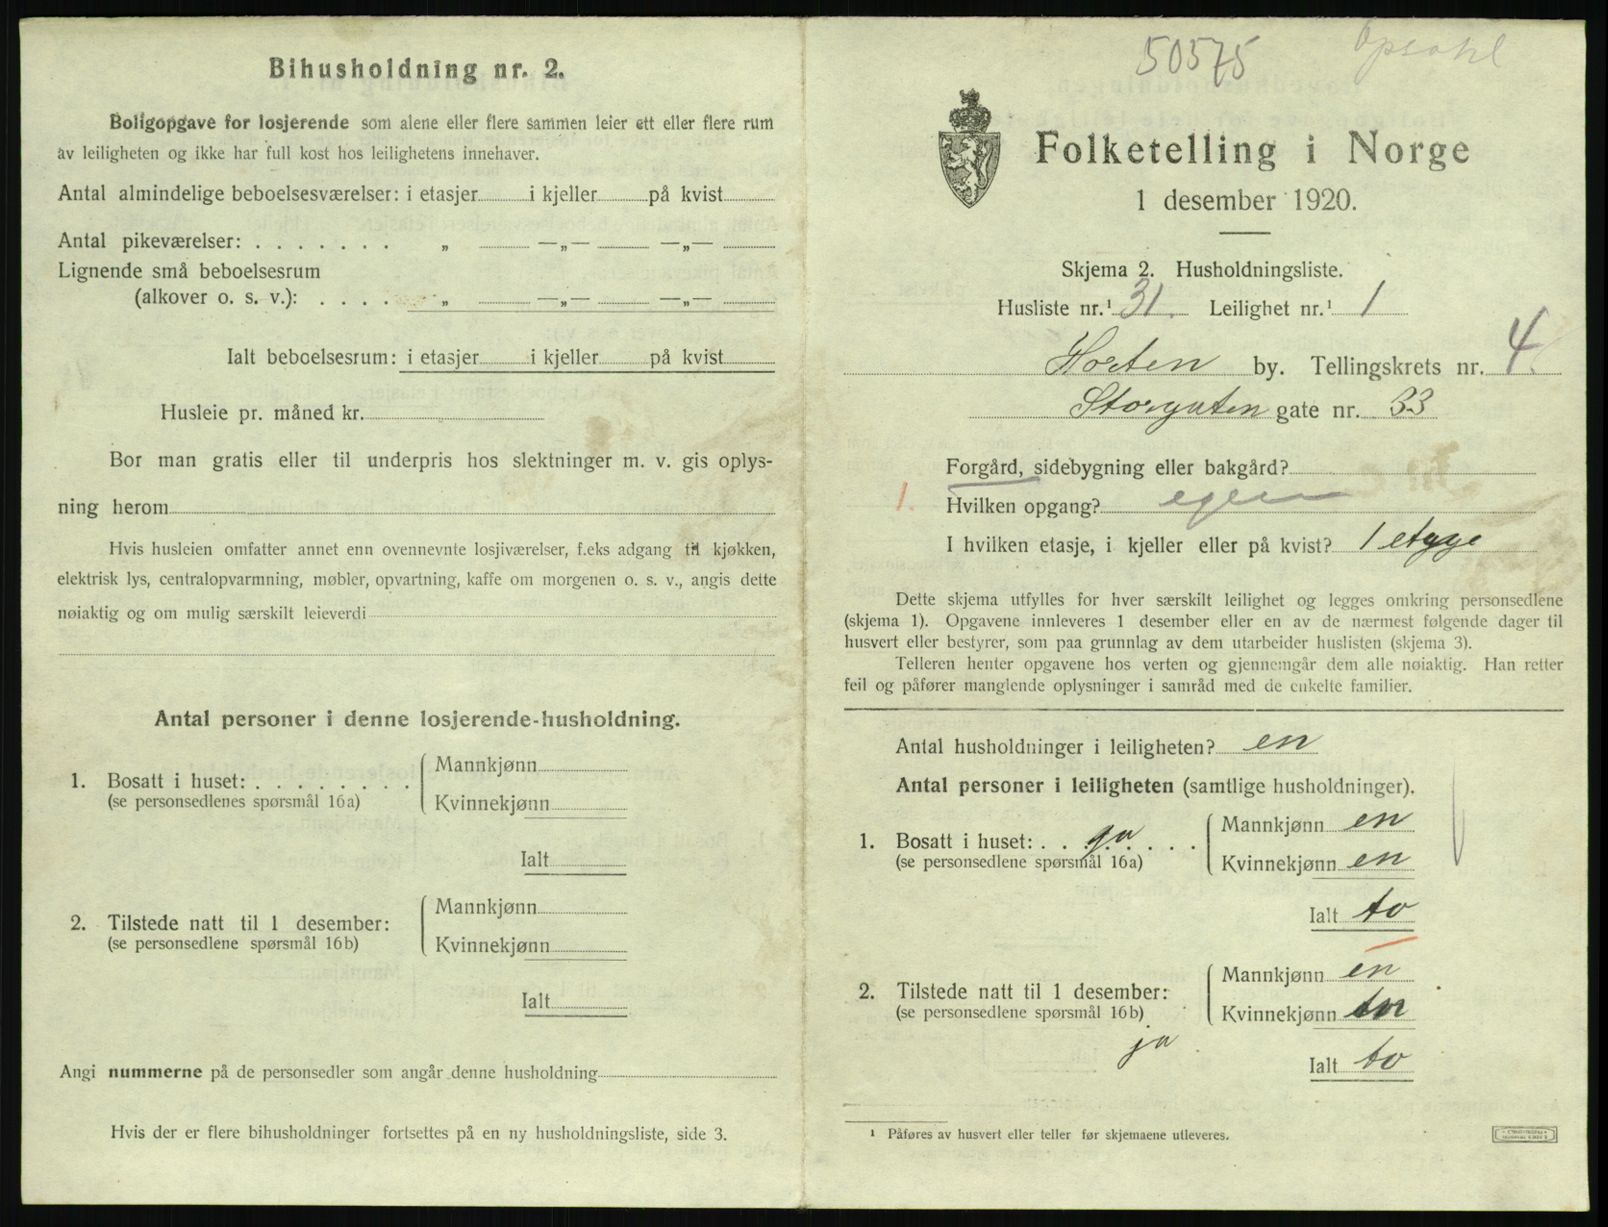 Bihusholdning nr. 2.
Boligopgave for losjerende som alene eller flere sammen leier ett eller flere rum
av leiligheten og ikke har full kost hos leilighetens innehaver.
Antal almindelige beboelsesværelser: i etasjer i kjeller på kvist
Antal pikeværelser: . . . . . . . „ —„— —„—
Lignende små beboelsesrum
(alkover o. s. v.): . . . . „ —„— —„—
Ialt beboelsesrum: i etasjer i kjeller på kvist
Husleie pr. måned kr.
Bor man gratis eller til underpris hos slektninger m. v. gis oplys-
ning herom
Hvis husleien omfatter annet enn ovennevnte losjiværelser, f.eks adgang til kjøkken,
elektrisk lys, centralopvarmning, møbler, opvartning, kaffe om morgenen o. s. v., angis dette
nøiaktig og om mulig særskilt leieverdi
Antal personer i denne losjerende-husholdning.
1. Bosatt i huset: . . . . . . . .
(se personsedlenes spørsmål 16a)
Mannkjønn
Kvinnekjønn
Ialt
2. Tilstede natt til 1 desember:
(se personsedlene spørsmål 16b)
Mannkjønn
Kvinnekjønn
Ialt
Angi nummerne på de personsedler som angår denne husholdning
Hvis der er flere bihusholdninger fortsettes på en ny husholdningsliste, side 3.
50575 Opsahl
Folketelling i Norge
1 desember 1920.
Skjema 2. Husholdningsliste.
Husliste nr.¹ 31. Leilighet nr.¹ 1
Horten by. Tellingskrets nr. 4.
Storgaten gate nr. 33
Forgård, sidebygning eller bakgård?
1. Hvilken opgang? egen
I hvilken etasje, i kjeller eller på kvist? 1 etage
Dette skjema utfylles for hver særskilt leilighet og legges omkring personsedlene
(skjema 1). Opgavene innleveres 1 desember eller en av de nærmest følgende dager til
husvert eller bestyrer, som paa grunnlag av dem utarbeider huslisten (skjema 3).
Telleren henter opgavene hos verten og gjennemgår dem alle nøiaktig. Han retter
feil og påfører manglende oplysninger i samråd med de enkelte familier.
Antal husholdninger i leiligheten? en
Antal personer i leiligheten (samtlige husholdninger).
1. Bosatt i huset: . . ja . . . .
(se personsedlene spørsmål 16a)
Mannkjønn en
Kvinnekjønn en
Ialt to
2. Tilstede natt til 1 desember:
(se personsedlene spørsmål 16b)
ja
Mannkjønn en
Kvinnekjønn en
Ialt to
¹ Påføres av husvert eller teller før skjemaene utleveres.